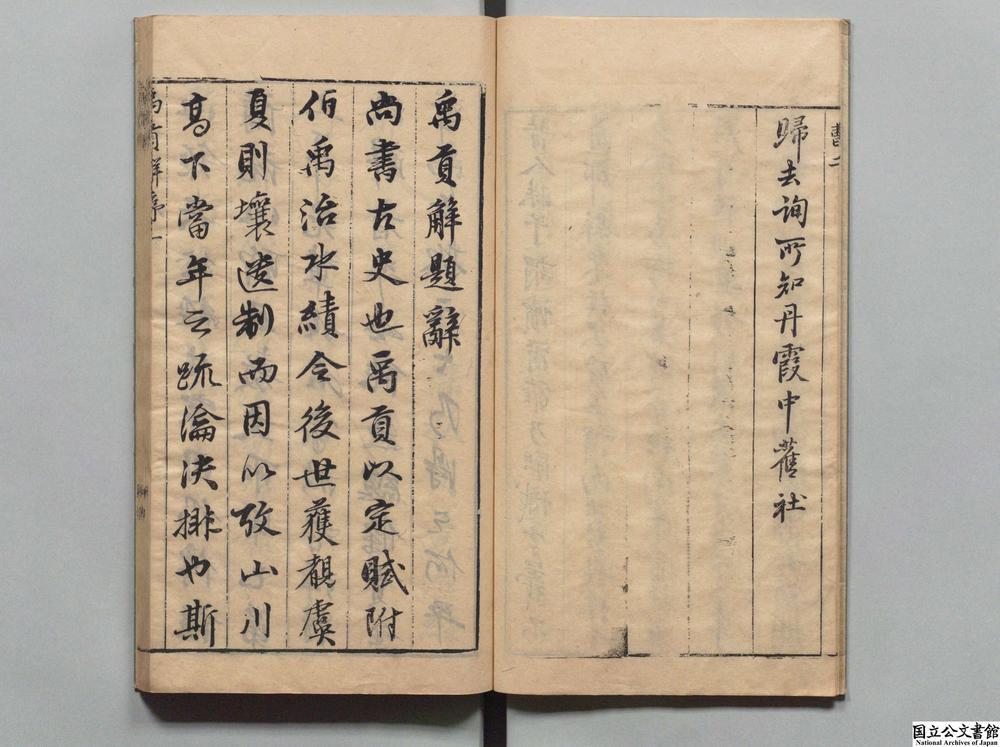 歸去詢所知丹霞中舊社
禹貢解題辭
尚書古史也禹貢以定賦附
伯禹治水績令後世獲覩虞
夏則壤遺制而因以攷山川
高下當年之疏瀹决排也斯
禹貢解序一
国立公文書館
National Archives of Japan